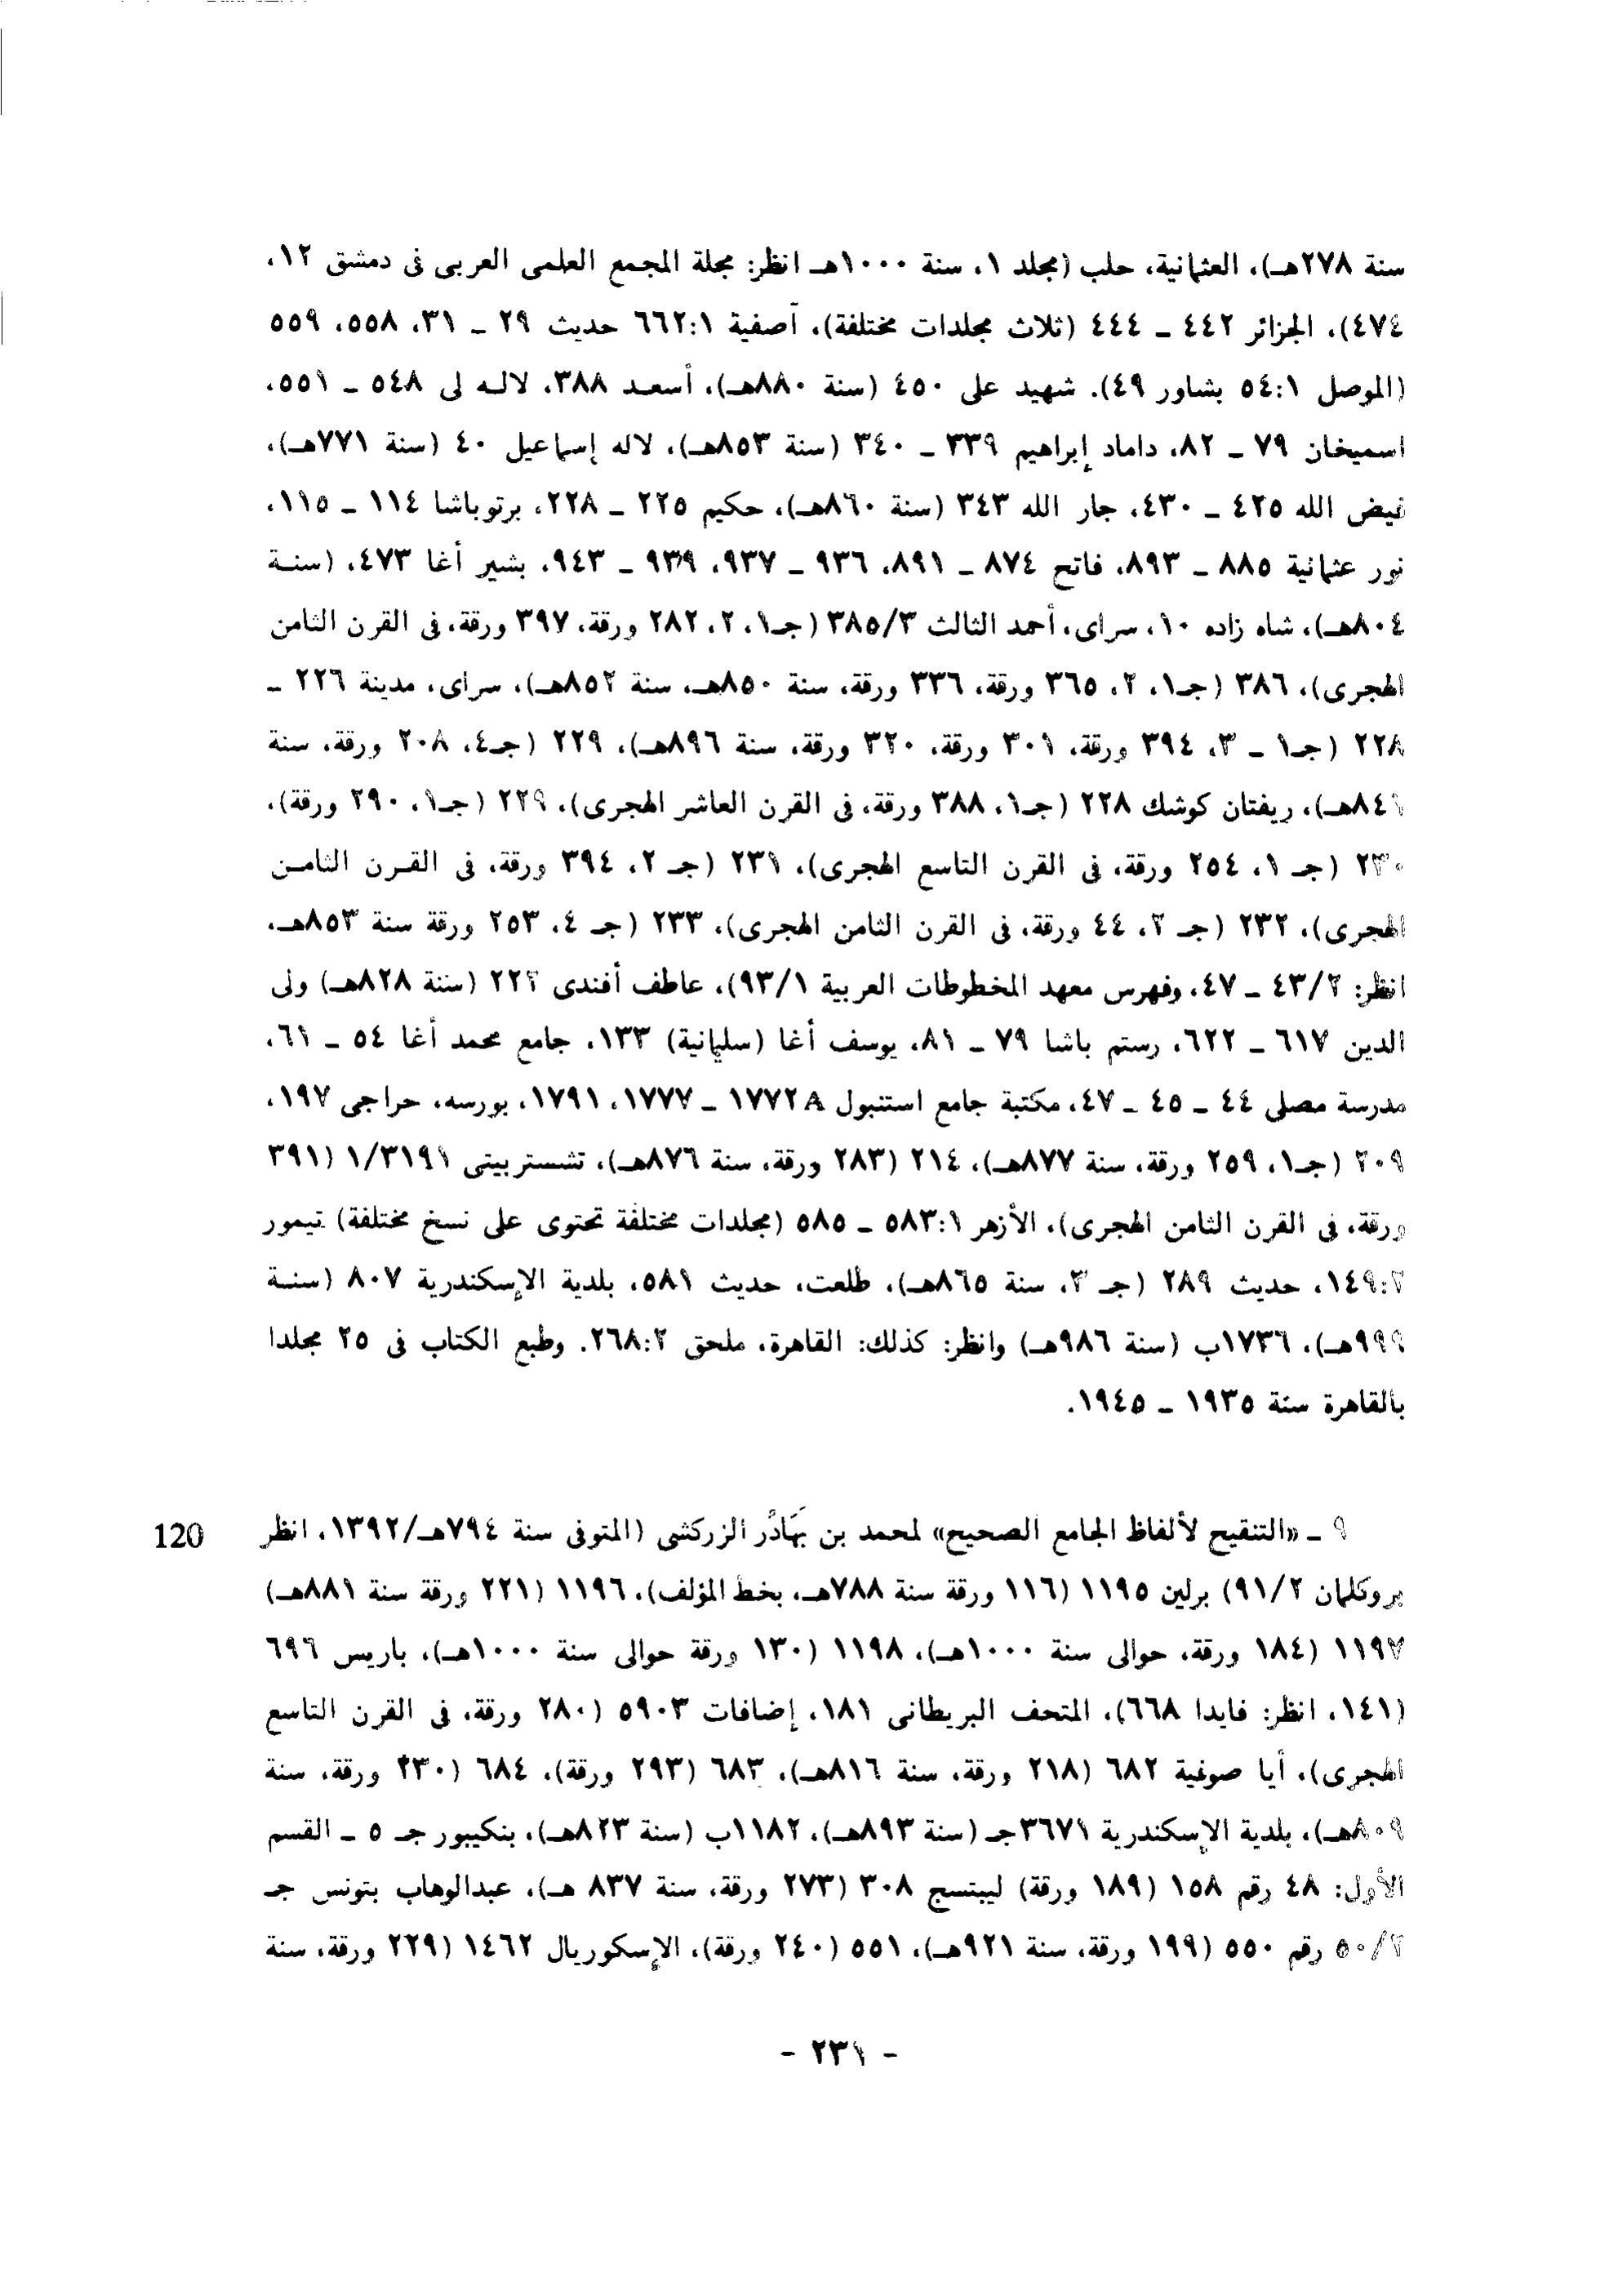 سنة ٢٧٨هـ)، العثمانية، حلب (مجلد ١، سنة ١٠٠٠هـ انظر: مجلة المجمع العلمى العربى فى دمشق ١٢،
٤٧٤)، الجزائر ٤٤٢ ــ ٤٤٤ (ثلاث مجلدات مختلفة)، آصفية ٦٦٢:١ حديث ٢٩ ــ ٣١، ٥٥٨، ٥٥٩
(الموصل ٥٤:١ بشاور ٤٩). شهيد على ٤٥٠ (سنة ٨٨٠هـ)، أسعد ٣٨٨، لاله لى ٥٤٨ ــ ٥٥١،
اسميخان ٧٩ ــ ٨٢، داماد إبراهيم ٣٣٩ ــ ٣٤٠ (سنة ٨٥٣هـ)، لاله إسماعيل ٤٠ (سنة ٧٧١هـ)،
فيض الله ٤٢٥ ــ ٤٣٠، جار الله ٣٤٣ (سنة ٨٦٠هـ)، حكيم ٢٢٥ ــ ٢٢٨، برتوباشا ١١٤ ــ ١١٥،
نور عثمانية ٨٨٥ ــ ٨٩٣، فاتح ٨٧٤ ــ ٨٩١، ٩٣٦ ــ ٩٣٧، ٩٣٩ ــ ٩٤٣، بشير أغا ٤٧٣، (سنة
٨٠٤هـ)، شاه زاده ١٠، سراى، أحمد الثالث ٣٨٥/٣ (جـ١، ٢، ٢٨٢ ورقة، ٣٩٧ ورقة، فى القرن الثامن
الهجرى)، ٣٨٦ (جـ١، ٢، ٣٦٥ ورقة، ٣٣٦ ورقة، سنة ٨٥٠هـ، سنة ٨٥٢هـ)، سراى، مدينة ٢٢٦ ــ
٢٢٨ (جـ١ ــ ٣، ٣٩٤ ورقة، ٣٠١ ورقة، ٣٢٠ ورقة، سنة ٨٩٦هـ)، ٢٢٩ (جـ٤، ٢٠٨ ورقة، سنة
٨٤٦هـ)، ريفتان كوشك ٢٢٨ (جـ١، ٣٨٨ ورقة، فى القرن العاشر الهجرى)، ٢٢٩ (جـ١، ٢٩٠ ورقة)،
٢٣٠ (جـ ١، ٢٥٤ ورقة، فى القرن التاسع الهجرى)، ٢٣١ (جـ ٢، ٣٩٤ ورقة، فى القرن الثامن
الهجرى)، ٢٣٢ (جـ ٢، ٤٤ ورقة، فى القرن الثامن الهجرى)، ٢٣٣ (جـ ٤، ٢٥٣ ورقة سنة ٨٥٣هـ،
انظر: ٤٣/٢ ــ ٤٧، وفهرس معهد المخطوطات العربية ٩٣/١)، عاطف أفندى ٢٢٢ (سنة ٨٢٨هـ) ولى
الدين ٦١٧ ــ ٦٢٢، رستم باشا ٧٩ ــ ٨١، يوسف أغا (سليمانية) ١٣٣، جامع محمد أغا ٥٤ ــ ٦١،
مدرسة مصلى ٤٤ ــ ٤٥ ــ ٤٧، مكتبة جامع استنبول ١٧٧٢A ــ ١٧٧٧، ١٧٩١، بورسه، حراجى ١٩٧،
٢٠٩ (جـ١، ٢٥٩ ورقة، سنة ٨٧٧هـ)، ٢١٤ (٢٨٣ ورقة، سنة ٨٧٦هـ)، تشستربيتى ١/٣١٩١ (٣٩١
ورقة، فى القرن الثامن الهجرى)، الأزهر ٥٨٣:١ ــ ٥٨٥ (مجلدات مختلفة تحتوى على نسخ مختلفة) تيمور
١٤٩:٢، حديث ٢٨٩ (جـ ٣، سنة ٨٦٥هـ)، طلعت، حديث ٥٨١، بلدية الإسكندرية ٨٠٧ (سنة
٩٩٩هـ)، ١٧٣٦ب (سنة ٩٨٦هـ) وانظر: كذلك: القاهرة، ملحق ٢٦٨:٢. وطبع الكتاب فى ٢٥ مجلدا
بالقاهرة سنة ١٩٣٥ ــ ١٩٤٥.
٩ ــ «التنقيح لألفاظ الجامع الصحيح» لمحمد بن بَهَادُر الزركشى (المتوفى سنة ٧٩٤هـ/١٣٩٢، انظر 120
بروكلمان ٩١/٢) برلين ١١٩٥ (١١٦ ورقة سنة ٧٨٨هـ، بخط المؤلف)، ١١٩٦ (٢٢١ ورقة سنة ٨٨١هـ)
١١٩٧ (١٨٤ ورقة، حوالى سنة ١٠٠٠هـ)، ١١٩٨ (١٣٠ ورقة حوالى سنة ١٠٠٠هـ)، باريس ٦٩٦
(١٤١، انظر: فايدا ٦٦٨)، المتحف البريطانى ١٨١، إضافات ٥٩٠٣ (٢٨٠ ورقة، فى القرن التاسع
الهجرى)، أيا صوفية ٦٨٢ (٢١٨ ورقة، سنة ٨١٦هـ)، ٦٨٣ (٢٩٣ ورقة)، ٦٨٤ (٢٣٠ ورقة، سنة
٨٠٩هـ)، بلدية الإسكندرية ٣٦٧١جـ (سنة ٨٩٣هـ)، ١١٨٢ب (سنة ٨٢٣هـ)، بنكيبور جـ ٥ ــ القسم
الأول: ٤٨ رقم ١٥٨ (١٨٩ ورقة) ليبتسج ٣٠٨ (٢٧٣ ورقة، سنة ٨٣٧ هـ)، عبدالوهاب بتونس جـ
٥٠/٢ رقم ٥٥٠ (١٩٩ ورقة، سنة ٩٢١هـ)، ٥٥١ (٢٤٠ ورقة)، الإسكوريال ١٤٦٢ (٢٢٩ ورقة، سنة
- ٢٣١ -